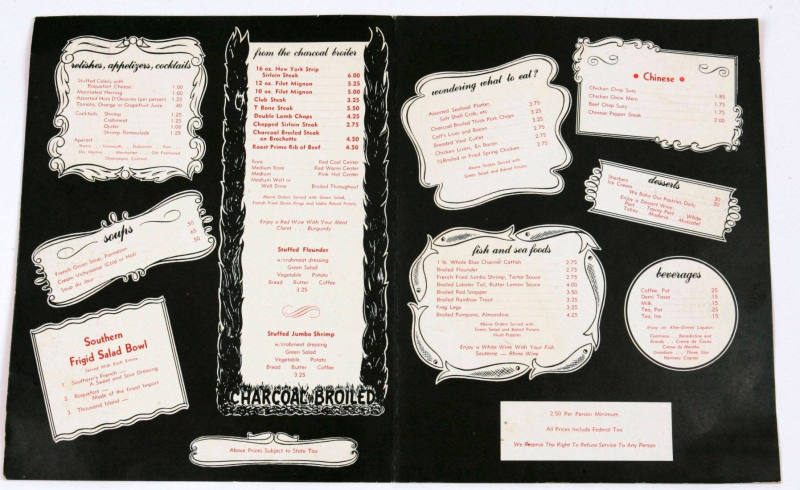 relishes, appetizers, cocktails
Stuffed Celery with
Roquefort Cheese 1.00
Marinated Herring 1.00
Assorted Hors D'Oeuvres (per person) 1.25
Tomato, Orange or Grapefruit Juice .40
Cocktails: Shrimp 1.25
Crabmeat 1.25
Oyster 1.00
Shrimp Remoulade 1.25
soups
French Onion Soup, Parmesan .50
Cream Vichyssoise (Cold or Hot) .65
Soup du Jour .50
Southern
Frigid Salad Bowl
Served With Each Entree
1 Southern's French —
A Sweet and Sour Dressing
2 Roquefort —
Made of the Finest Import
3 Thousand Island —
from the charcoal broiler
16 oz. New York Strip
Sirloin Steak 6.00
12 oz. Filet Mignon 5.25
10 oz. Filet Mignon 5.00
Club Steak 3.25
T Bone Steak 5.50
Double Lamb Chops 4.25
Chopped Sirloin Steak 2.75
Charcoal Broiled Steak
en Brochette 4.50
Roast Prime Rib of Beef 4.50
Rare Red Cool Center
Medium Rare Red Warm Center
Medium Pink Hot Center
Medium Well or
Well Done Broiled Throughout
Above Orders Served with Green Salad,
French Fried Onion Rings and Idaho Baked Potato
Enjoy a Red Wine With Your Meat
Claret Burgundy
Stuffed Flounder
w/crabmeat dressing
Green Salad
Vegetable Potato
Bread Butter Coffee
3.25
Stuffed Jumbo Shrimp
w/crabmeat dressing
Green Salad
Vegetable Potato
Bread Butter Coffee
3.25
CHARCOAL BROILED
Above Prices Subject to State Tax
wondering what to eat?
Assorted Seafood Platter,
Soft Shell Crab, etc. 2.75
Charcoal Broiled Thick Pork Chops 3.25
Calf's Liver and Bacon 2.75
Breaded Veal Cutlet 2.75
Chicken Livers, En Bacon 2.75
½ Broiled or Fried Spring Chicken 2.75
Above Orders Served with
Green Salad and Baked Potato
Chinese
Chicken Chop Suey 1.85
Chicken Chow Mein 1.75
Beef Chop Suey 1.75
Chinese Pepper Steak 2.00
desserts
Sherbert .30
Ice Cream .30
We Bake Our Pastries Daily
Enjoy a Dessert Wine:
Port Tawny Port White
Port Tokay Madeira Muscatel
fish and sea foods
1 lb. Whole Blue Channel Catfish 2.75
Broiled Flounder 2.75
French Fried Jumbo Shrimp, Tartar Sauce 2.75
Broiled Lobster Tail, Butter Lemon Sauce 4.00
Broiled Red Snapper 3.50
Broiled Rainbow Trout 3.25
Frog Legs 3.25
Broiled Pompano, Almondine 4.25
Above Orders Served with
Green Salad and Baked Potato
Hush Puppies
Enjoy a White Wine With Your Fish
Sauterne — Rhine Wine
beverages
Coffee, Pot .25
Demi Tasse .15
Milk .15
Tea, Pot .25
Tea, Ice .15
Enjoy an After-Dinner Liqueur:
Cointreau Benedictine and
Brandy Creme de Cacao
Creme de Menthe
Drambuie Three Star
Hennesy Cognac
2.50 Per Person Minimum
All Prices Include Federal Tax
We Reserve The Right To Refuse Service To Any Person